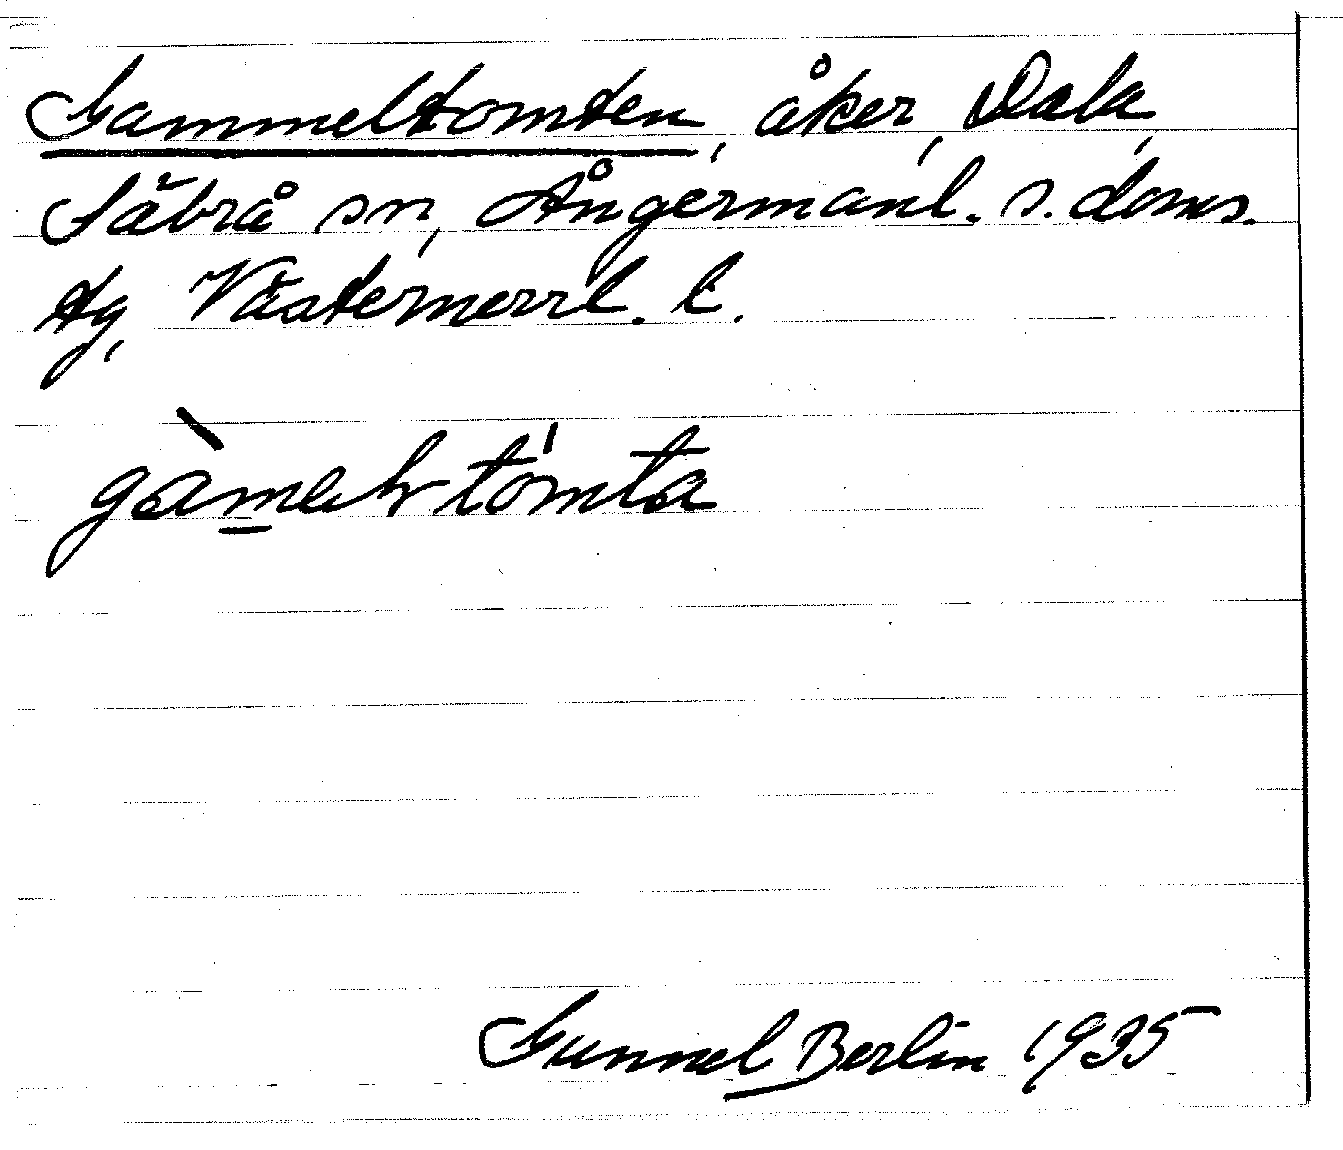 Gammeltomten, åker, Dala,
Säbrå sn, Ångermanl. s. doms.
tg, Västernorrl. l.
gàmalrtómta
Gunnel Berlin 1935